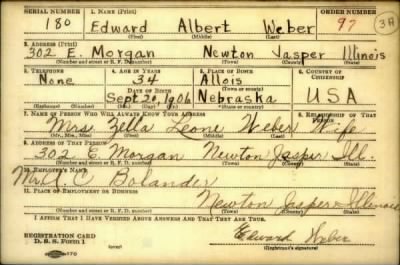 SERIAL NUMBER 1. NAME (Print) ORDER NUMBER
180 Edward Albert Weber 97 3A
(First) (Middle) (Last)
2. ADDRESS (Print)
302 E. Morgan Newton Jasper Illinois
(Number and street or R. F. D. number) (Town) (County) (State)
3. TELEPHONE 4. AGE IN YEARS 5. PLACE OF BIRTH 6. COUNTRY OF CITIZENSHIP
None 34 Allois
DATE OF BIRTH (Town or county)
Sept 20 1906 Nebraska USA
(Exchange) (Number) (Mo.) (Day) (Yr.) (State or country)
7. NAME OF PERSON WHO WILL ALWAYS KNOW YOUR ADDRESS 8. RELATIONSHIP OF THAT PERSON
Mrs Zella Leone Weber Wife
(Mr., Mrs., Miss) (First) (Middle) (Last)
9. ADDRESS OF THAT PERSON
302 E Morgan Newton Jasper Ill.
(Number and street or R. F. D. number) (Town) (County) (State)
10. EMPLOYER'S NAME
C Bolander
11. PLACE OF EMPLOYMENT OR BUSINESS
Newton Jasper Illinois
(Number and street or R. F. D. number) (Town) (County) (State)
I AFFIRM THAT I HAVE VERIFIED ABOVE ANSWERS AND THAT THEY ARE TRUE.
REGISTRATION CARD
D. S. S. Form 1
Edward Weber
(Registrant's signature)